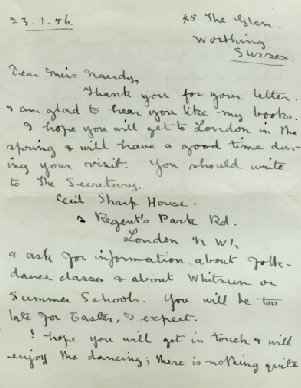 23.1.56. 25 The Glen.
Worthing
Sussex.
Dear Miss
Thank you for your letter.
I am glad to hear you like my books.
I hope you will get to London in the
spring & will have a good time dur-
ing your visit. You should write
to The Secretary.
Cecil Sharp House.
2 Regent's Park Rd.
London N W1.
& ask for information about folk-
dance classes & about Whitsun or
Summer Schools. You will be too
late for Easter, I expect.
I hope you will get in touch & will
enjoy the dancing; there is nothing quite